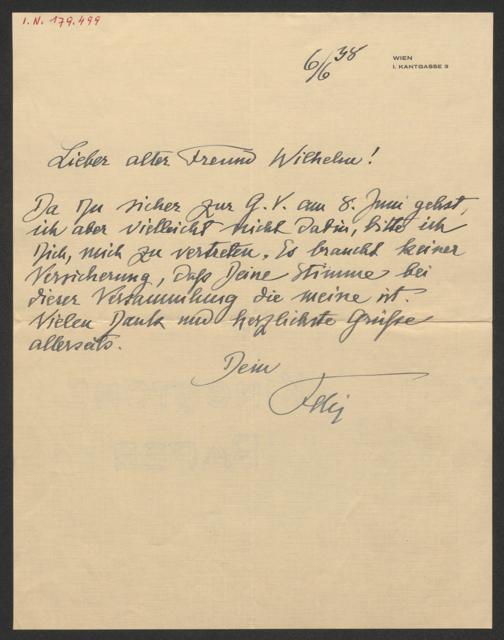 I.N. 179.499
6/6 38
WIEN
I. KANTGASSE 3
Lieber alter Freund Wilhelm!
Da Du sicher zur G.V. am 8. Juni gehst,
ich aber vielleicht nicht, bitte ich
Dich, mich zu vertreten. Es braucht keiner
Versicherung, daß Deine Stimme bei
dieser Versammlung die meine ist.
Vielen Dank und herzlichste Grüße
allerseits.
Dein